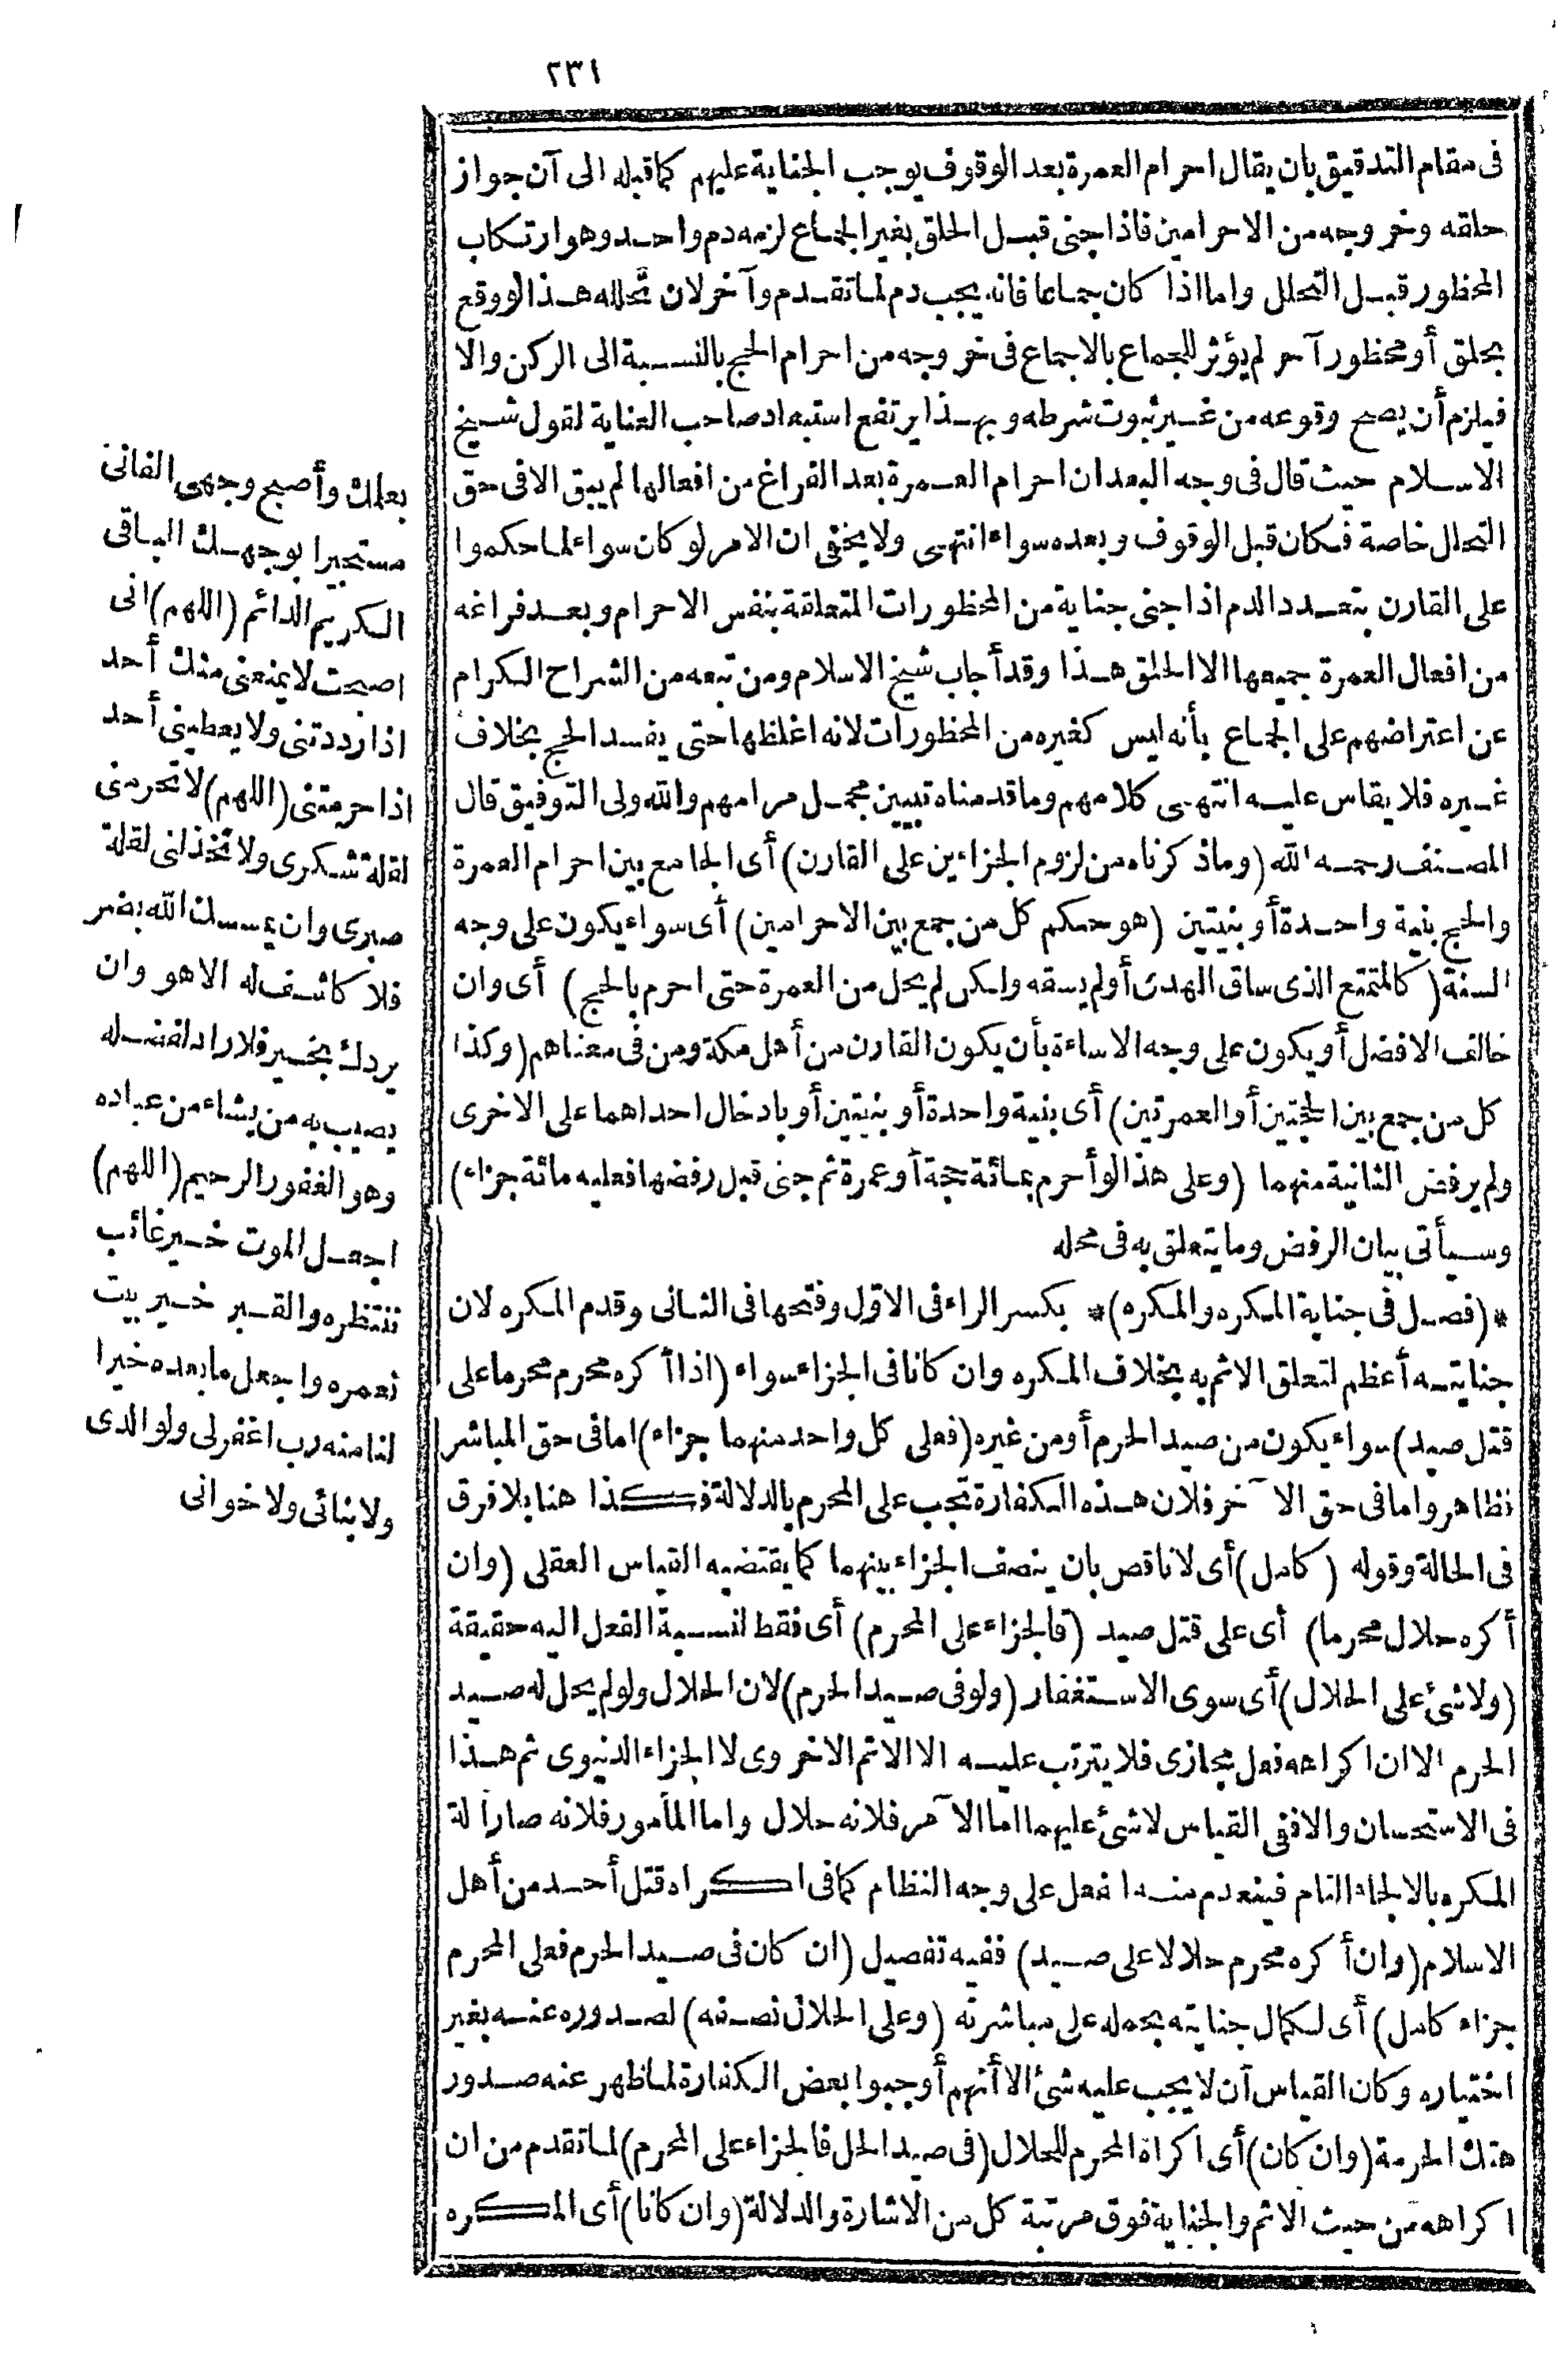 ٢٣١
فى مقام التدقيق بان يقال احرام العمرة بعد الوقوف يوجب الجناية عليهم كما قبله الى آن جواز
حلقه وخروجه من الاحرامين فاذا جنى قبل الحلق بغير الجماع لزمه دم واحد وهو ارتكاب
المحظور قبل التحلل واما اذا كان جماعا فانه يجب دم لما تقدم وآخر لان تحلله هذا لو وقع
بحلق أو محظور آخر لم يؤثر للجماع بالاجماع فى خروجه من احرام الحج بالنسبة الى الركن والا
فيلزم أن يصح وقوعه من غير ثبوت شرطه وبهذا يرتفع استبعاد صاحب العناية لقول شيخ
الاسلام حيث قال فى وجه البعد ان احرام العمرة بعد الفراغ من افعالها لم يبق الا فى حق
التحلل خاصة فكان قبل الوقوف وبعده سواء انتهى ولا يخفى ان الامر لو كان سواء لما حكموا
على القارن بتعدد الدم اذا جنى جناية من المحظورات المتعلقة بنفس الاحرام وبعد فراغه
من افعال العمرة جميعها الا الحلق هذا وقد أجاب شيخ الاسلام ومن تبعه من الشراح الكرام
عن اعتراضهم على الجماع بأنه ليس كغيره من المحظورات لانه اغلظها حتى يفسد الحج بخلاف
غيره فلا يقاس عليه انتهى كلامهم وما قدمناه تبيين مجمل مرامهم والله ولى التوفيق قال
المصنف رحمه الله (وما ذكرناه من لزوم الجزاءين على القارن) أى الجامع بين احرام العمرة
والحج بنية واحدة أو بنيتين (هو حكم كل من جمع بين الاحرامين) أى سواء يكون على وجه
السنة (كالمتمتع الذى ساق الهدى أو لم يسقه ولكن لم يحل من العمرة حتى احرم بالحج) أى وان
خالف الافضل أو يكون على وجه الاساءة بأن يكون القارن من أهل مكة ومن فى معناهم (وكذا
كل من جمع بين الحجتين أو العمرتين) أى بنية واحدة أو بنيتين أو بادخال احداهما على الاخرى
ولم يرفض الثانية منهما (وعلى هذا لو أحرم بمائة حجة أو عمرة ثم جنى قبل رفضها فعليه مائة جزاء)
وسيأتى بيان الرفض وما يتعلق به فى محله
*(فصل فى جناية المكره والمكره)* بكسر الراء فى الاول وفتحها فى الثانى وقدم المكره لان
جنايته أعظم لتعلق الاثم به بخلاف المكره وان كانا فى الجزاء سواء (اذا أكره محرم محرما على
قتل صيد) سواء يكون من صيد الحرم أو من غيره (فعلى كل واحد منهما جزاء) اما فى حق المباشر
فظاهر واما فى حق الآخر فلان هذه الكفارة تجب على المحرم بالدلالة فكذا هنا بلا فرق
فى الحالة وقوله (كامل) أى لا ناقص بان ينصف الجزاء بينهما كما يقتضيه القياس العقلى (وان
أكره حلال محرما) أى على قتل صيد (فالجزاء على المحرم) أى فقط لنسبة الفعل اليه حقيقة
(ولا شئ على الحلال) أى سوى الاستغفار (ولو فى صيد الحرم) لان الحلال ولو لم يحل له صيد
الحرم الا ان اكراهه فعل مجازى فلا يترتب عليه الا الاثم الاخروى لا الجزاء الدنيوى ثم هذا
فى الاستحسان والا ففى القياس لا شئ عليهما اما الآمر فلانه حلال واما المأمور فلانه صار آلة
المكره بالالجاء التام فينعدم منه الفعل على وجه النظام كما فى اكراه قتل أحد من أهل
الاسلام (وان أكره محرم حلالا على صيد) ففيه تفصيل (ان كان فى صيد الحرم فعلى المحرم
جزاء كامل) أى لكمال جنايته بحمله على مباشرته (وعلى الحلال نصفه) لصدوره عنه بغير
اختياره وكان القياس أن لا يجب عليه شئ الا أنهم أوجبوا بعض الكفارة لما ظهر عنه صدور
هتك الحرمة (وان كان) أى اكراه المحرم للحلال (فى صيد الحل فالجزاء على المحرم) لما تقدم من ان
اكراهه من حيث الاثم والجناية فوق مرتبة كل من الاشارة والدلالة (وان كانا) أى المكره
بعلمك وأصبح وجهى الفانى
مستجيرا بوجهك الباقى
الكريم الدائم (اللهم) انى
اصبحت لا يمنعنى منك أحد
اذا رددتنى ولا يعطينى أحد
اذا حرمتنى (اللهم) لا تحرمنى
لقلة شكرى ولا تخذلنى لقلة
صبرى وان يمسسك الله بضر
فلا كاشف له الا هو وان
يردك بخير فلا راد لفضله
يصيب به من يشاء من عباده
وهو الغفور الرحيم (اللهم)
اجعل الموت خير غائب
ننتظره والقبر خير بيت
نعمره واجعل ما بعده خيرا
لنا منه رب اغفر لى ولوالدى
ولابنائى ولاخوانى